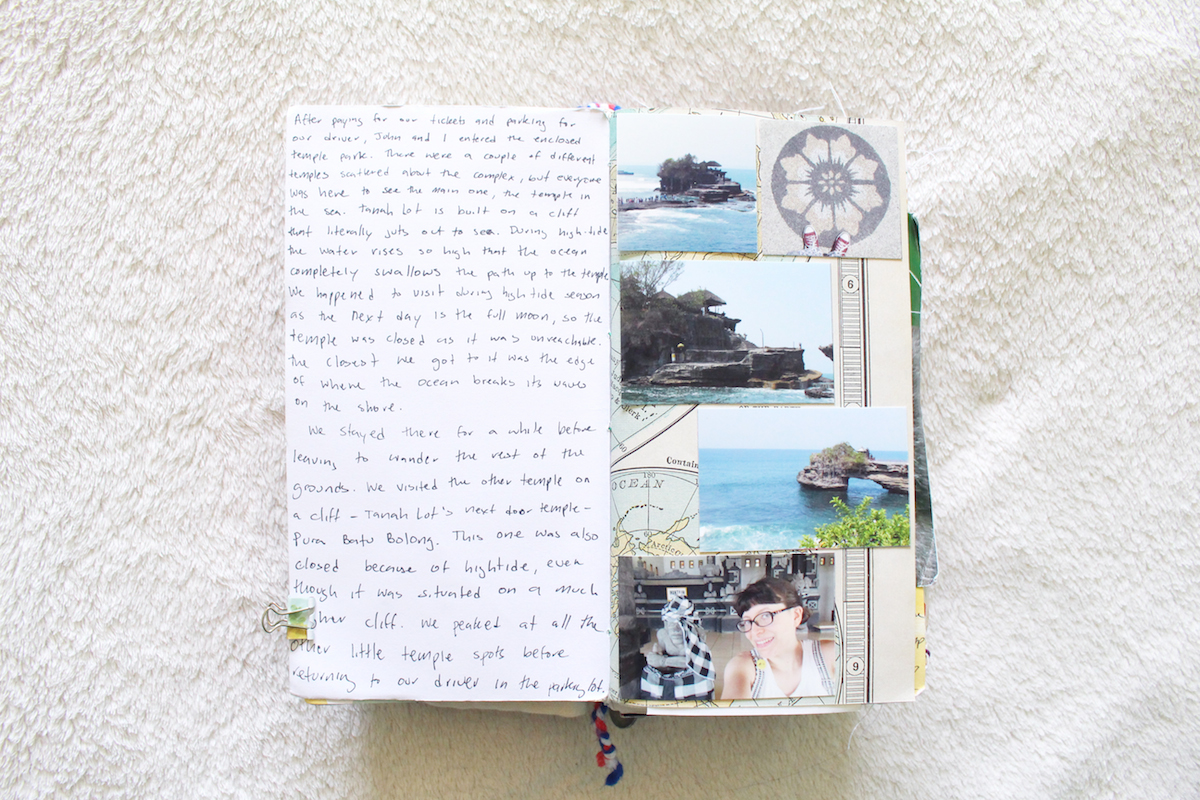 After paying for our tickets and parking for
our driver, John and I entered the enclosed
temple park. There were a couple of different
temples scattered about the complex, but everyone
was here to see the main one, the temple in
the sea. Tanah Lot is built on a cliff
that literally juts out to sea. During high-tide
the water rises so high that the ocean
completely swallows the path up to the temple.
We happened to visit during high tide season
as the next day is the full moon, so the
temple was closed as it was unreachable.
The closest we got to it was the edge
of where the ocean breaks its waves
on the shore.
We stayed there for a while before
leaving to wander the rest of the
grounds. We visited the other temple on
a cliff - Tanah Lot's next door temple -
Pura Batu Bolong. This one was also
closed because of hightide, even
though it was situated on a much
cliff. We peaked at all the
other little temple spots before
returning to our driver in the parking lot.
6
60
Contain
180
OCEAN
Arctic
9